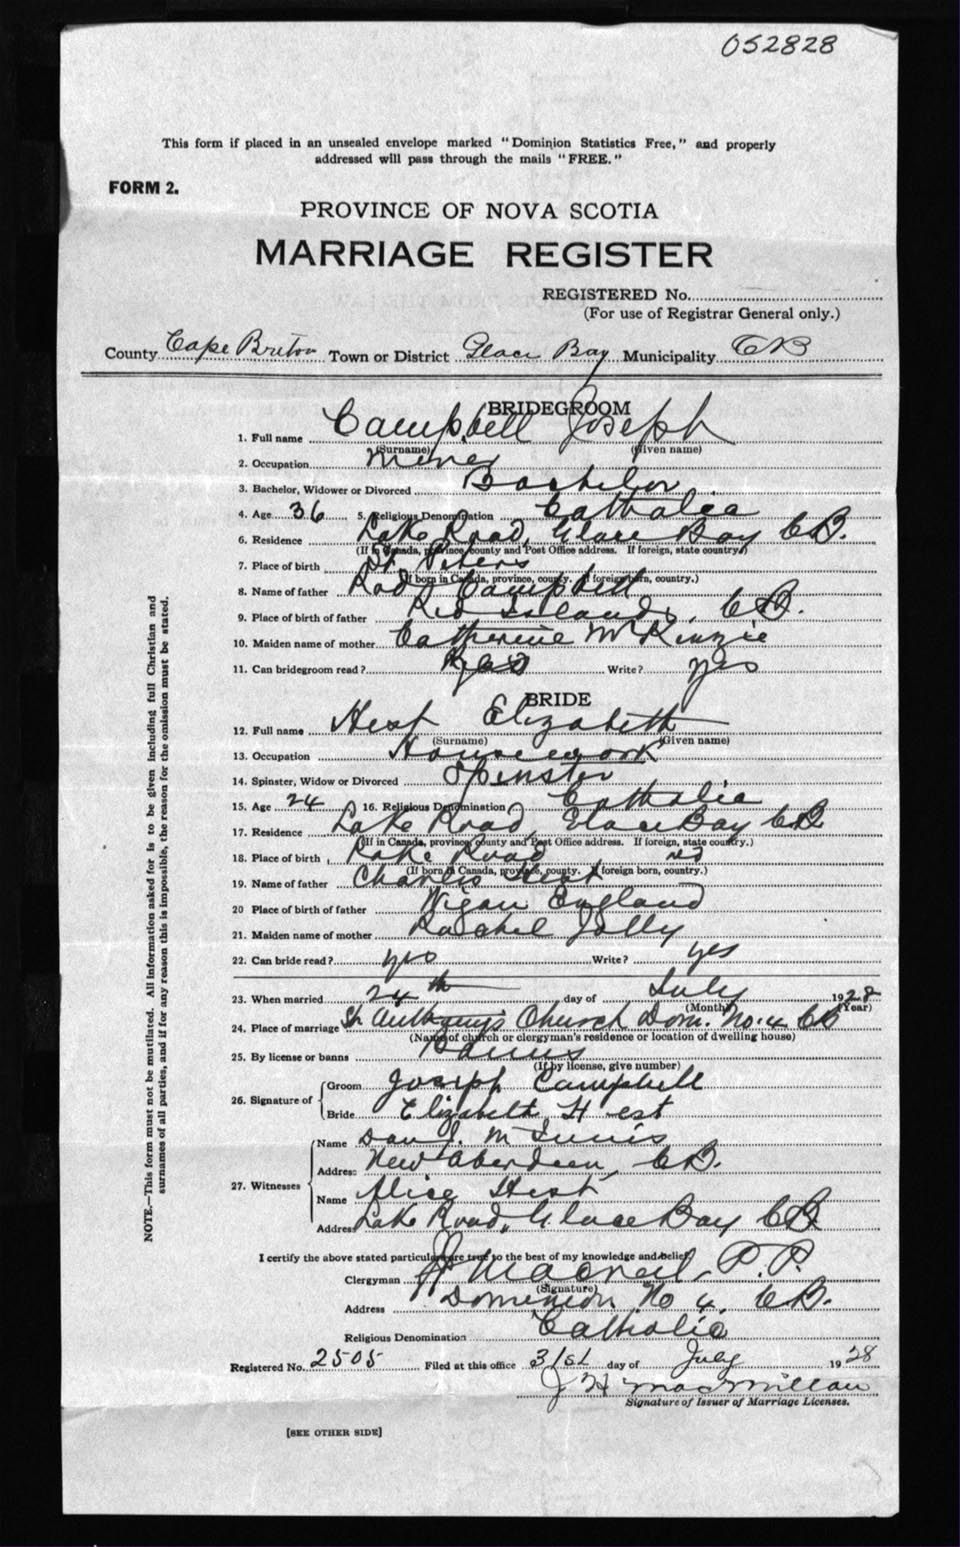 052828
This form if placed in an unsealed envelope marked "Dominion Statistics Free," and properly
addressed will pass through the mails "FREE."
FORM 2.
PROVINCE OF NOVA SCOTIA
MARRIAGE REGISTER
REGISTERED No.
(For use of Registrar General only.)
County Cape Breton Town or District Glace Bay Municipality CB
BRIDEGROOM
1. Full name Campbell Joseph
(Surname) (Given name)
2. Occupation Miner
3. Bachelor, Widower or Divorced Bachelor
4. Age 36 5. Religious Denomination Catholic
6. Residence Lake Road, Glace Bay CB.
(If in Canada, province, county and Post Office address. If foreign, state country.)
7. Place of birth St. Peters
(If born in Canada, province, county. If foreign born, country.)
8. Name of father Rod Campbell
9. Place of birth of father Red Islands, CB.
10. Maiden name of mother Catherine McKinzie
11. Can bridegroom read? yes Write? yes
BRIDE
12. Full name Hest Elizabeth
(Surname) (Given name)
13. Occupation Housework
14. Spinster, Widow or Divorced Spinster
15. Age 24 16. Religious Denomination Catholic
17. Residence Lake Road, Glace Bay CB
(If in Canada, province, county and Post Office address. If foreign, state country.)
18. Place of birth Lake Road NS
(If born in Canada, province, county. If foreign born, country.)
19. Name of father Charles Hest
20 Place of birth of father Wigan England
21. Maiden name of mother Rachel Jolly
22. Can bride read? yes Write? yes
23. When married 24th day of July 1928
(Month) (Year)
24. Place of marriage St Anthony's Church Dom. No. 4 CB
(Name of church or clergyman's residence or location of dwelling house)
25. By license or banns Banns
(If by license, give number)
26. Signature of Groom Joseph Campbell
Bride Elizabeth Hest
27. Witnesses Name Dan J. McInnis
Address New Aberdeen, CB.
Name Alice Hest
Address Lake Road, Glace Bay CB
I certify the above stated particulars are true to the best of my knowledge and belief.
Clergyman MacNeil P.P.
(Signature)
Address Dominion No 4, CB.
Religious Denomination Catholic
Registered No. 2505 Filed at this office 31st day of July 1928
J H MacMillan
Signature of Issuer of Marriage Licenses.
[SEE OTHER SIDE]
NOTE.—This form must not be mutilated. All information asked for is to be given including full Christian and
surnames of all parties, and if for any reason this is impossible, the reason for the omission must be stated.